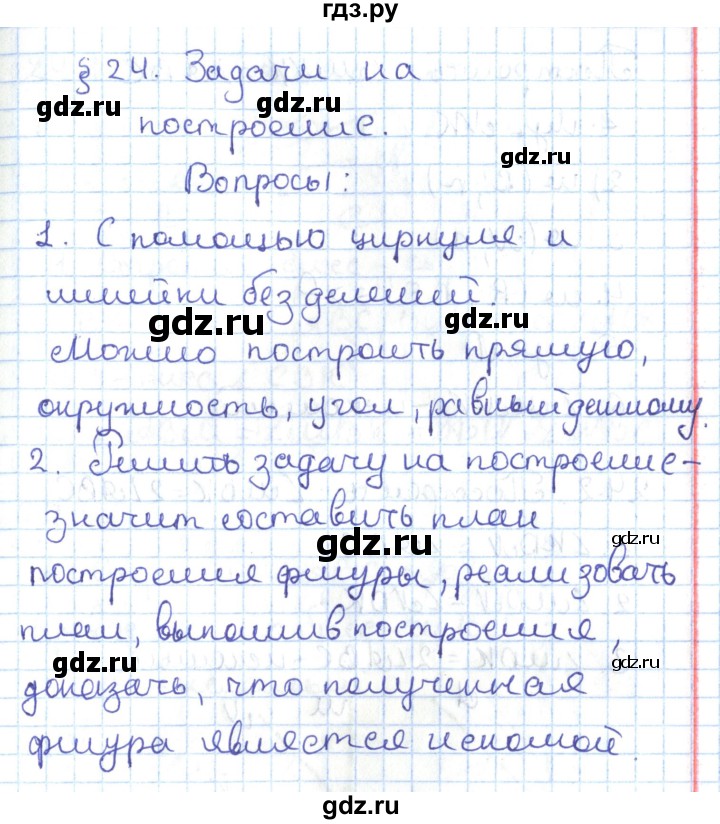 гдз.ру
§ 24. Задачи на
gdz.ru gdz.ru
построение.
gdz.ru
Вопросы:
1. С помощью циркуля и
линейки без делений.
gdz.ru gdz.ru
Можно построить прямую,
окружность, угол, равный данному.
2. Решить задачу на построение-
значит составить план
gdz.ru gdz.ru
построения фигуры, реализовать
план, выполнив построения,
gdz.ru gdz.ru
доказать, что полученная
фигура является искомой.
gdz.ru